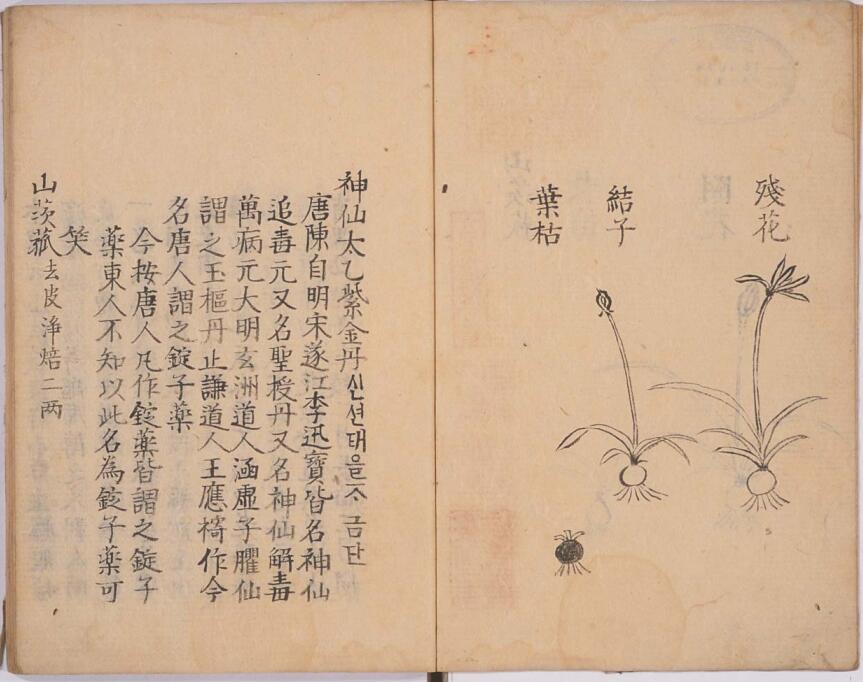 殘花
結子
葉枯
神仙太乙紫金丹신션태을ᄌᆞ금단
唐陳自明宋遂江李迅寶皆名神仙
追毒元又名聖授丹又名神仙解毒
萬病元大明玄洲道人涵虛子臞仙
謂之玉樞丹止謙道人王應作今
名唐人謂之錠子藥
今按唐人凡作錠藥皆謂之錠子
藥東人不知以此名為錠子藥可
笑
山茨菰去皮淨焙二两